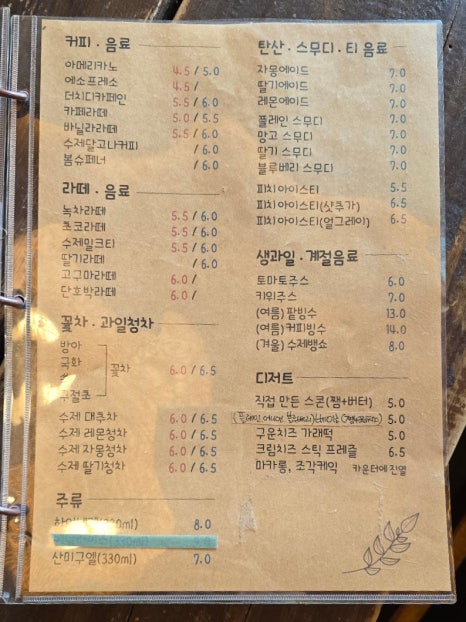 커피 · 음료
아메리카노 4.5 / 5.0
에소프레소 4.5 /
더치디카페인 5.5 / 6.0
카페라떼 5.0 / 5.5
바닐라라떼 5.5 / 6.0
수제달고나커피 / 6.0
봄슈페너 / 6.0
라떼 · 음료
녹차라떼 5.5 / 6.0
초코라떼 5.5 / 6.0
수제밀크티 5.5 / 6.0
딸기라떼 / 6.0
고구마라떼 6.0 /
단호박라떼 6.0 /
꽃차 · 과일청차
방아
국화
꽃차 6.0 / 6.5
구절초
수제 대추차 6.0 / 6.5
수제 레몬청차 6.0 / 6.5
수제 자몽청차 6.0 / 6.5
수제 딸기청차 6.0 / 6.5
주류
8.0
산미구엘(330ml) 7.0
탄산 · 스무디 · 티 음료
자몽에이드 7.0
딸기에이드 7.0
레몬에이드 7.0
플레인 스무디 7.0
망고 스무디 7.0
딸기 스무디 7.0
블루베리 스무디 7.0
피치아이스티 5.5
피치아이스티(샷추가) 6.5
피치아이스티(얼그레이) 6.5
생과일 · 계절음료
토마토주스 6.0
키위주스 7.0
(여름) 팥빙수 13.0
(여름) 커피빙수 14.0
(겨울) 수제뱅쇼 8.0
디저트
직접 만든 스콘(쨈+버터) 5.0
5.0
구운치즈 가래떡 5.0
크림치즈 스틱 프레즐 6.5
마카롱, 조각케익 카운터에 진열